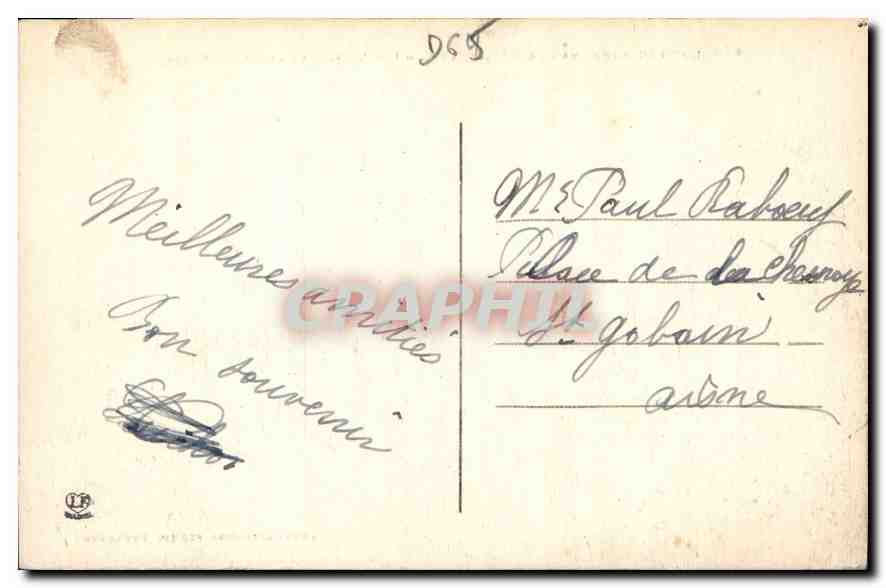 D65
Meilleures amitiés
Bon souvenir
Mr Paul Raboeuf
Palace de la chesnoye
St. gobain
aisne
CRAPHIL
LF